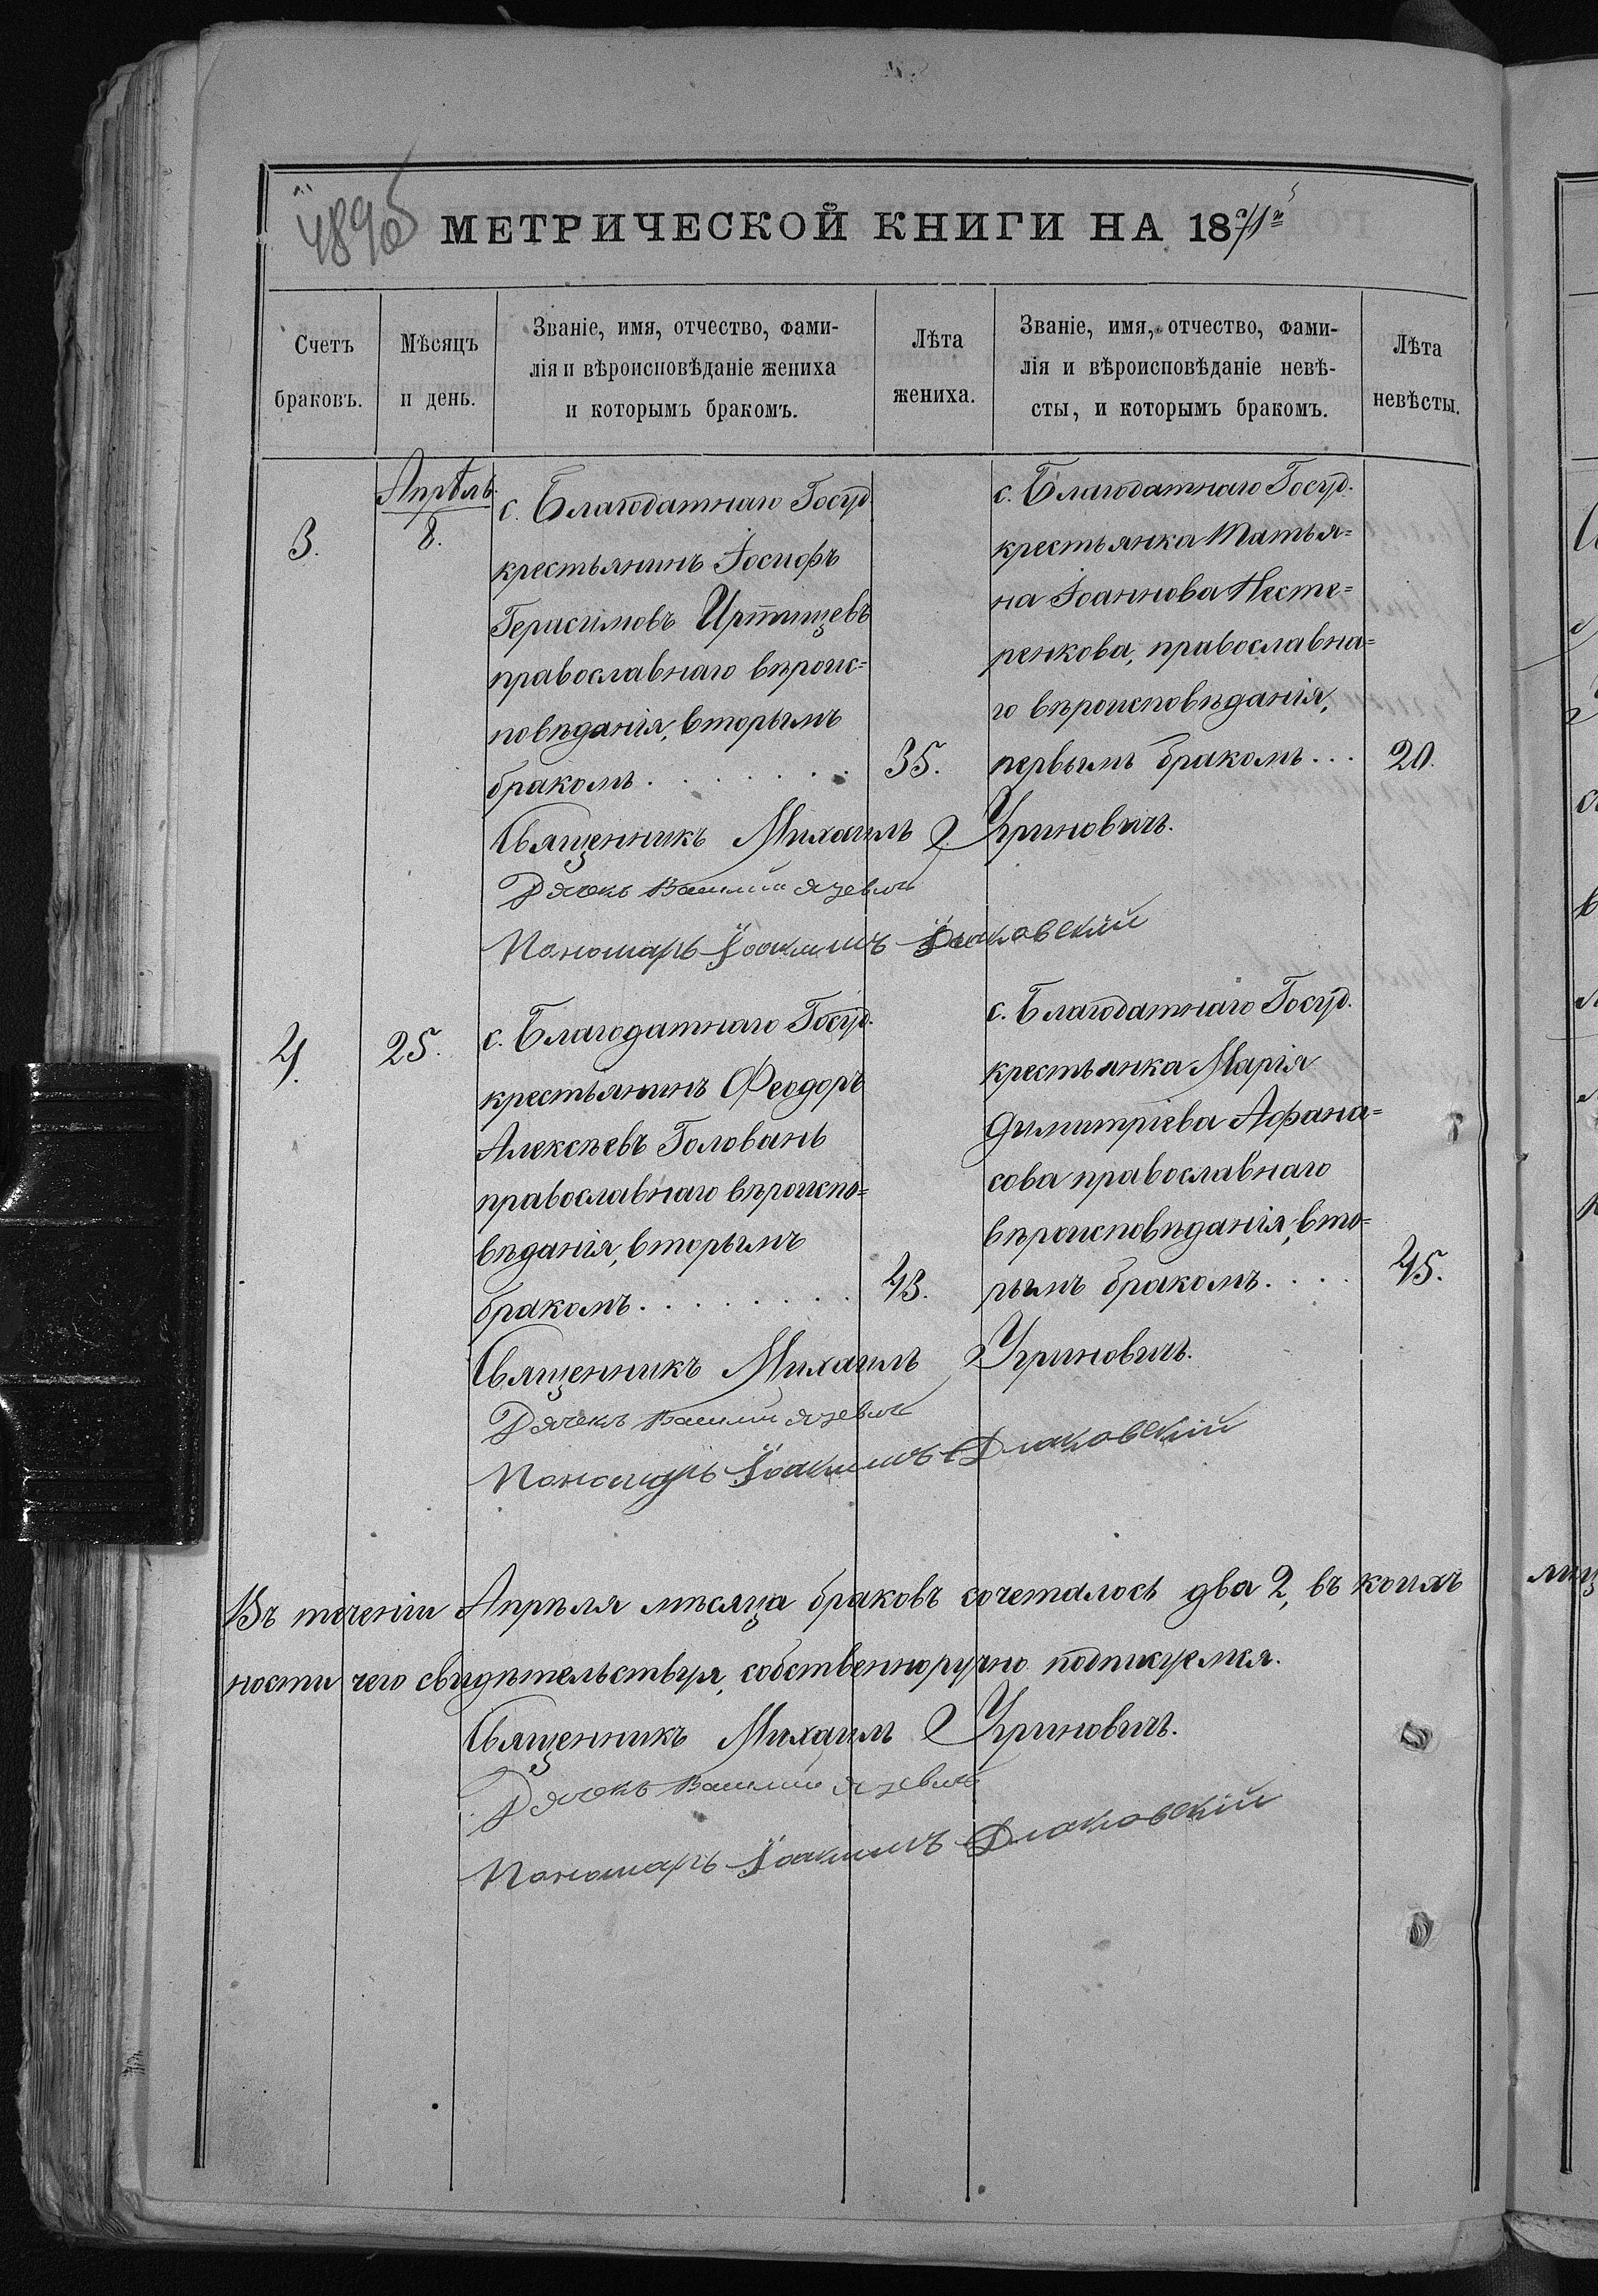 489об
МЕТРИЧЕСКОЙ КНИГИ НА 1871й
Счетъ браковъ.
Мѣсяцъ и день.
Званіе, имя, отчество, фами-
лія и вѣроисповѣданіе жениха
и которымъ бракомъ.
Лѣта жениха.
Званіе, имя, отчество, фами-
лія и вѣроисповѣданіе невѣ-
сты, и которымъ бракомъ.
Лѣта невѣсты.
3.
Апрѣль
8.
с. Благодатнаго Госуд.
крестьянинъ Іосифъ
Герасимовъ Иртищевъ
православнаго вѣроис=
повѣданія, вторымъ
бракомъ . . . . . . .
35.
с. Благодатнаго Госуд.
крестьянка Татья=
на Іоаннова Несте=
ренкова, православна=
го вѣроисповѣданія,
первымъ бракомъ . . .
20.
Священникъ Михаилъ Угриновичъ.
Дячекъ Василий
Пономарь Іоакимъ
4.
25.
с. Благодатнаго Госуд.
крестьянинъ Феодоръ
Алексѣевъ Головань
православнаго вѣроиспо=
вѣданія, вторымъ
бракомъ . . . . . . . .
43.
с. Благодатнаго Госуд.
крестьянка Марія
Димитріева Афана=
сова православнаго
вѣроисповѣданія, вто=
рымъ бракомъ . . . .
45.
Священникъ Михаилъ Угриновичъ.
Дячекъ Василий
Пономарь Іоакимъ
Въ теченіи Апрѣля мѣсяца браковъ сочеталось два 2, въ коихъ
ности чего свидѣтельствуя, собственноручно подписуемся.
Священникъ Михаилъ Угриновичъ.
Дячекъ Василий
Пономарь Іоакимъ